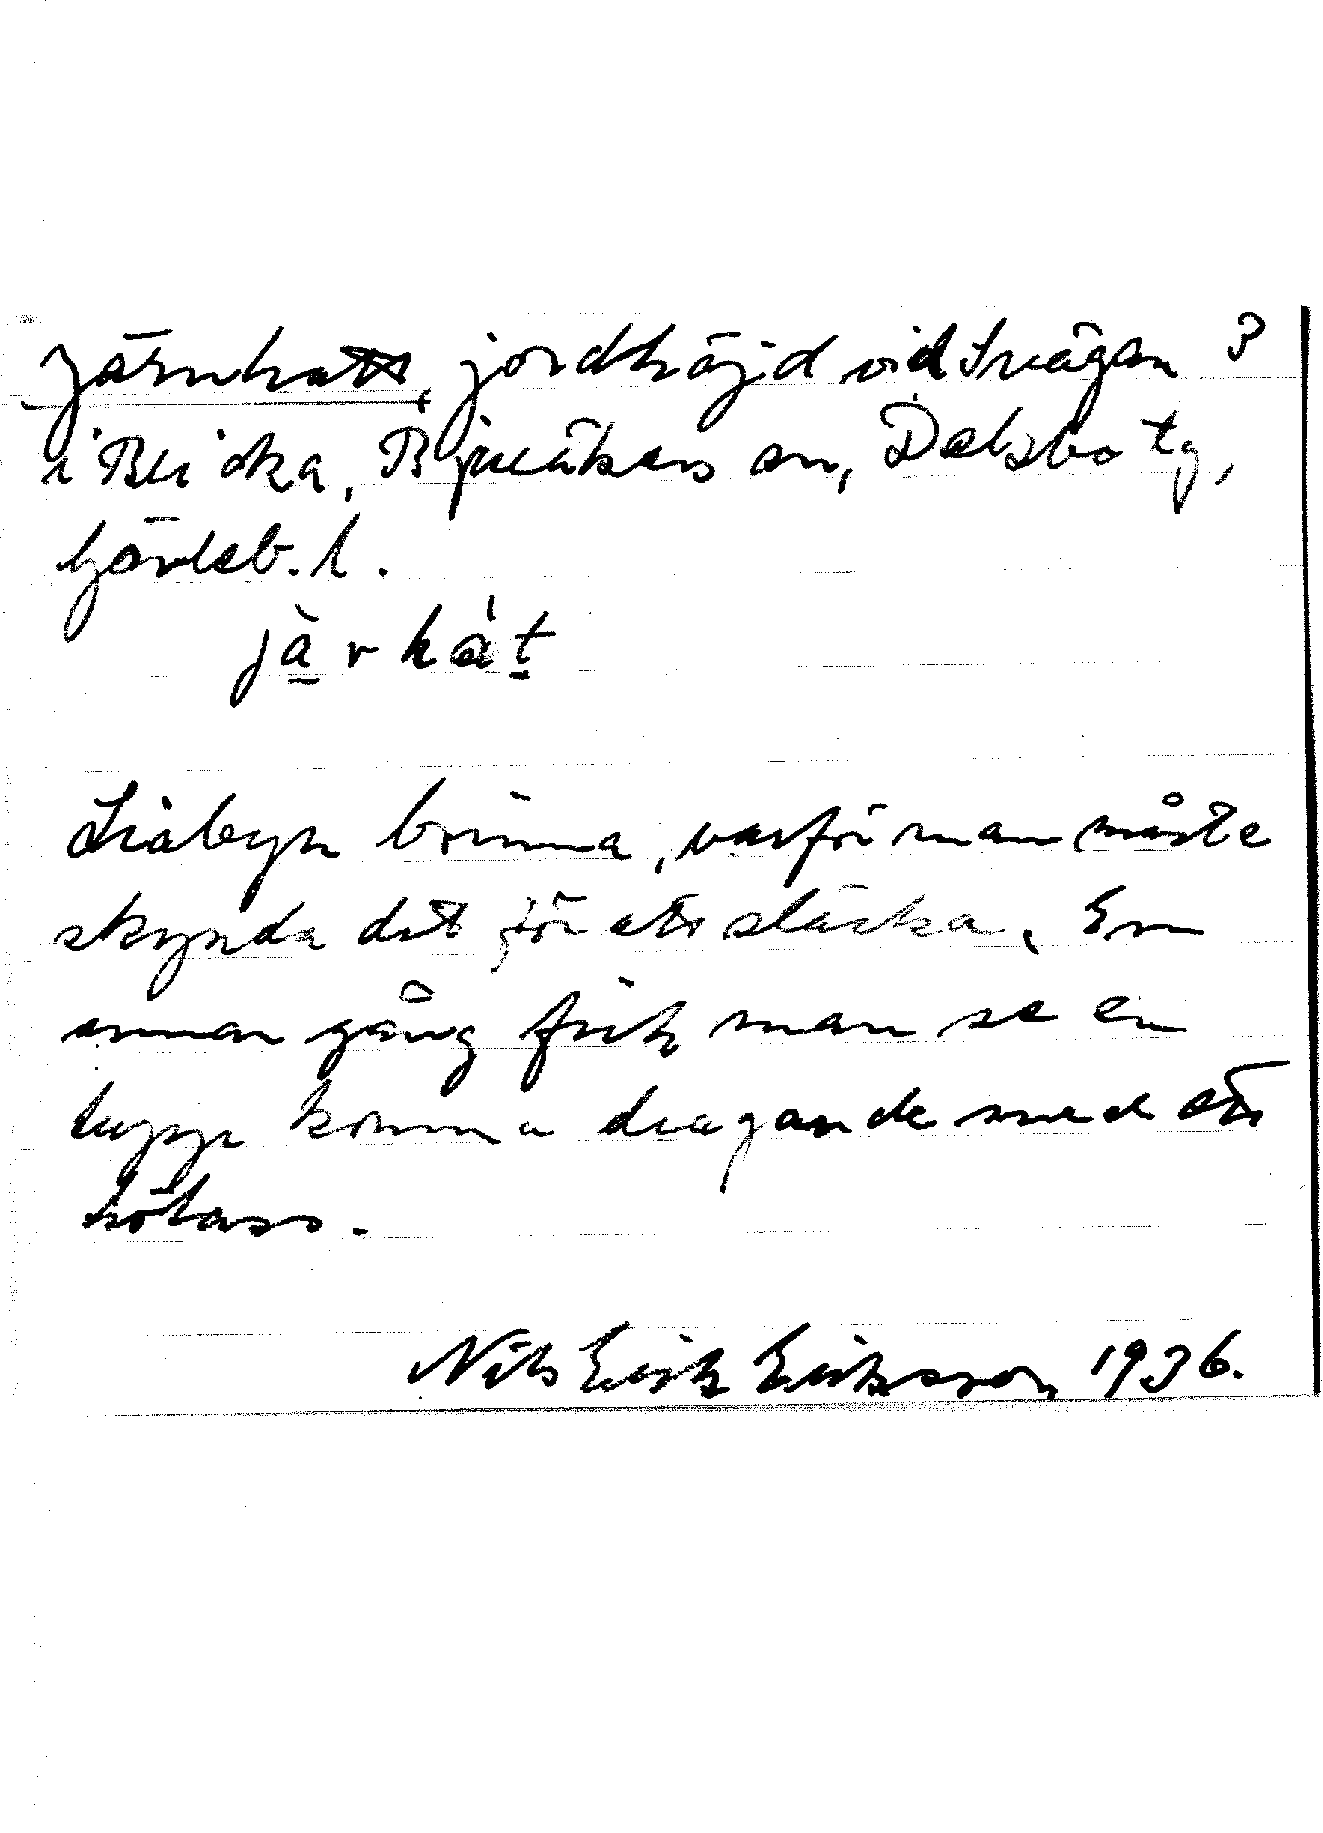 Järnhatt, jordhöjd vid Svågan 3
i Bricka, Bjuråkers sn, Delsbo tg,
Gävleb. l.
järhàt
byn brinna, varför man måste
skynda dit för att släcka. En
annan gång fick man se en
tupp komma dragande med ett
hölass.
Nils Erik Eriksson 1936.